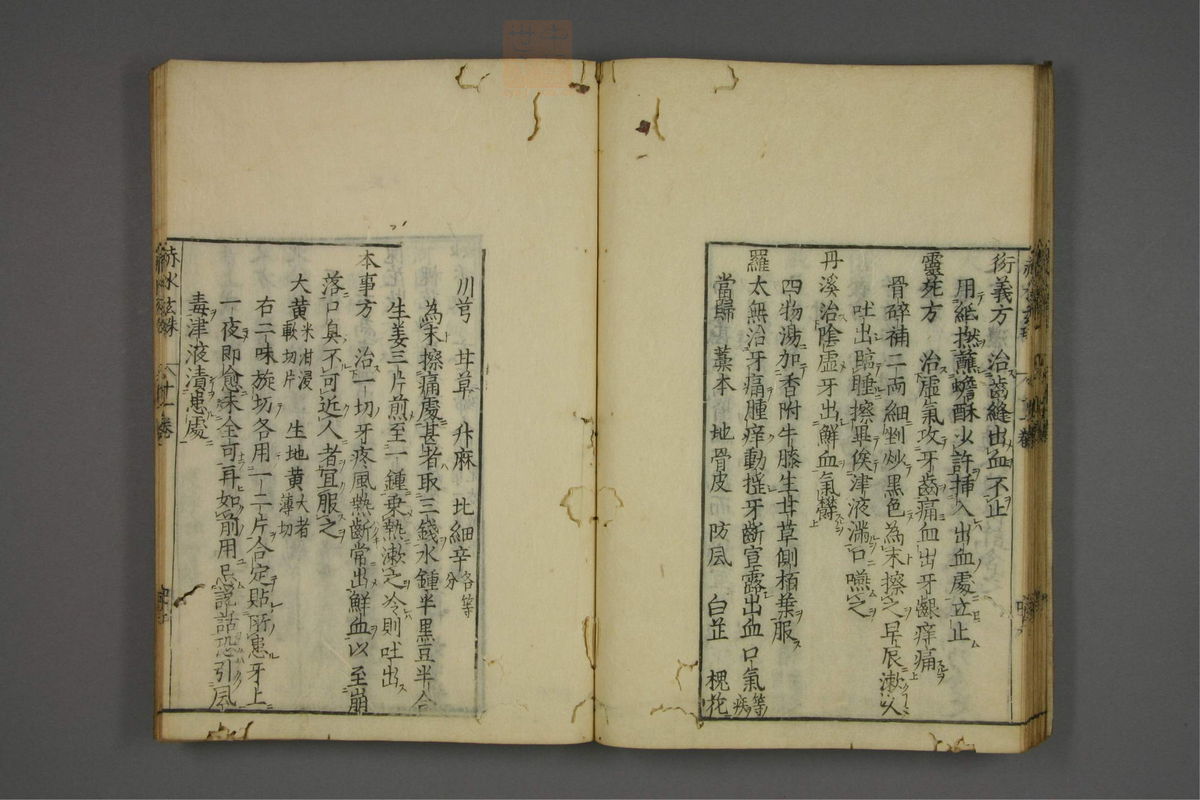 衍義方　治齒縫出血不止
用紙撚蘸蟾酥少許挿入出血處立止
靈苑方　治虛氣攻牙齒痛血出牙齦痒痛
骨碎補二兩細剉炒黒色為末擦之早辰漱以
吐出臨睡擦畢俟津液滿口嚥之
丹溪治陰虛牙出鮮血氣欝
四物湯加香附牛膝生甘草側栢葉服
羅太無治牙痛腫痒動搖牙齗宣露出血口氣等疾
當歸　藁本　地骨皮　防風　白芷　槐花
川芎　甘草　升麻　北細辛各等分
為末擦痛處甚者取三錢水鍾半黒豆半合
生姜三片煎至一鍾乗熱漱之冷則吐出
本事方　治一切牙疼風熱齗常出鮮血以至崩
落口臭不可近人者宜服之
大黄米泔浸軟切片　生地黄大者薄切
右二味旋切各用一二片合定貼所患牙上
一夜即愈未全可再如前用忌說話恐引風
毒津液漬患處
赤水玄珠